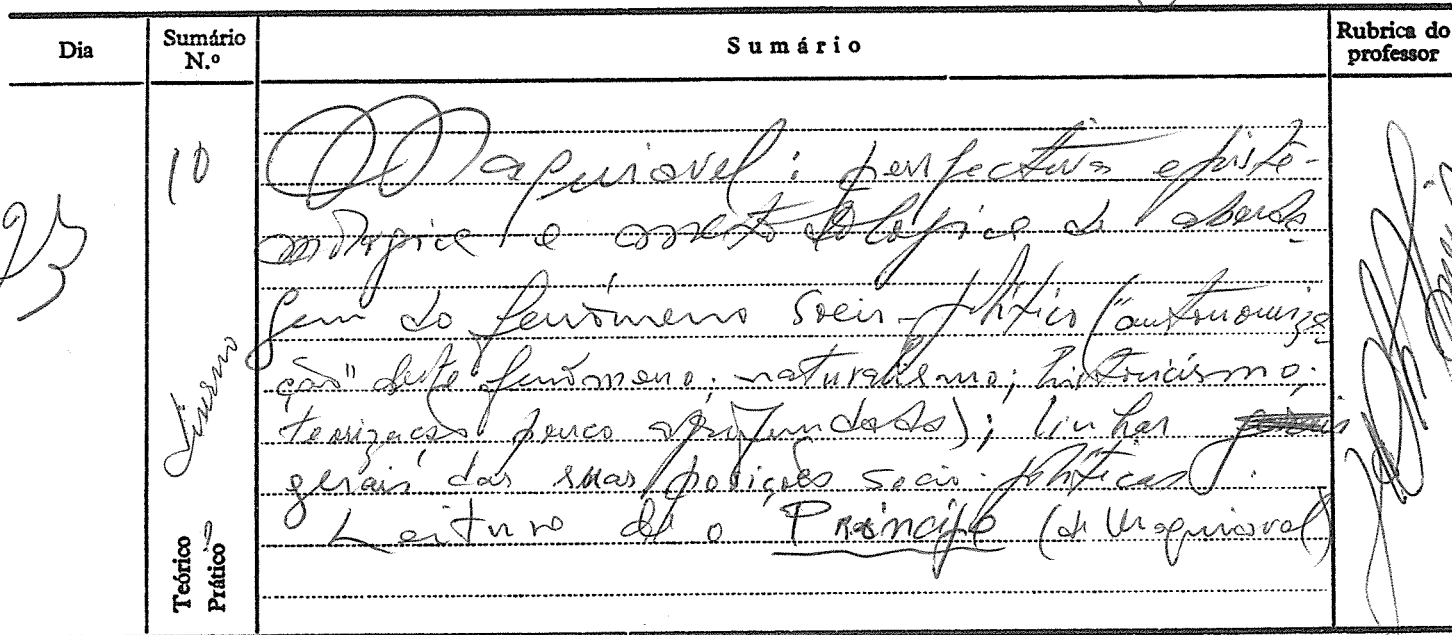 Dia
Sumário N.º
Sumário
Rubrica do professor
23
10
Diurno
Teórico
Prático
Maquiavel: perspectiva episte-
mológica e metodológica de aborda-
gem do fenómeno socio-político ("autonomiza-
ção" deste fenómeno; naturalismo; historicismo;
teorização pouco aprofundada); linhas
gerais das suas posições socio-políticas.
Leitura de o Príncipe (de Maquiavel)